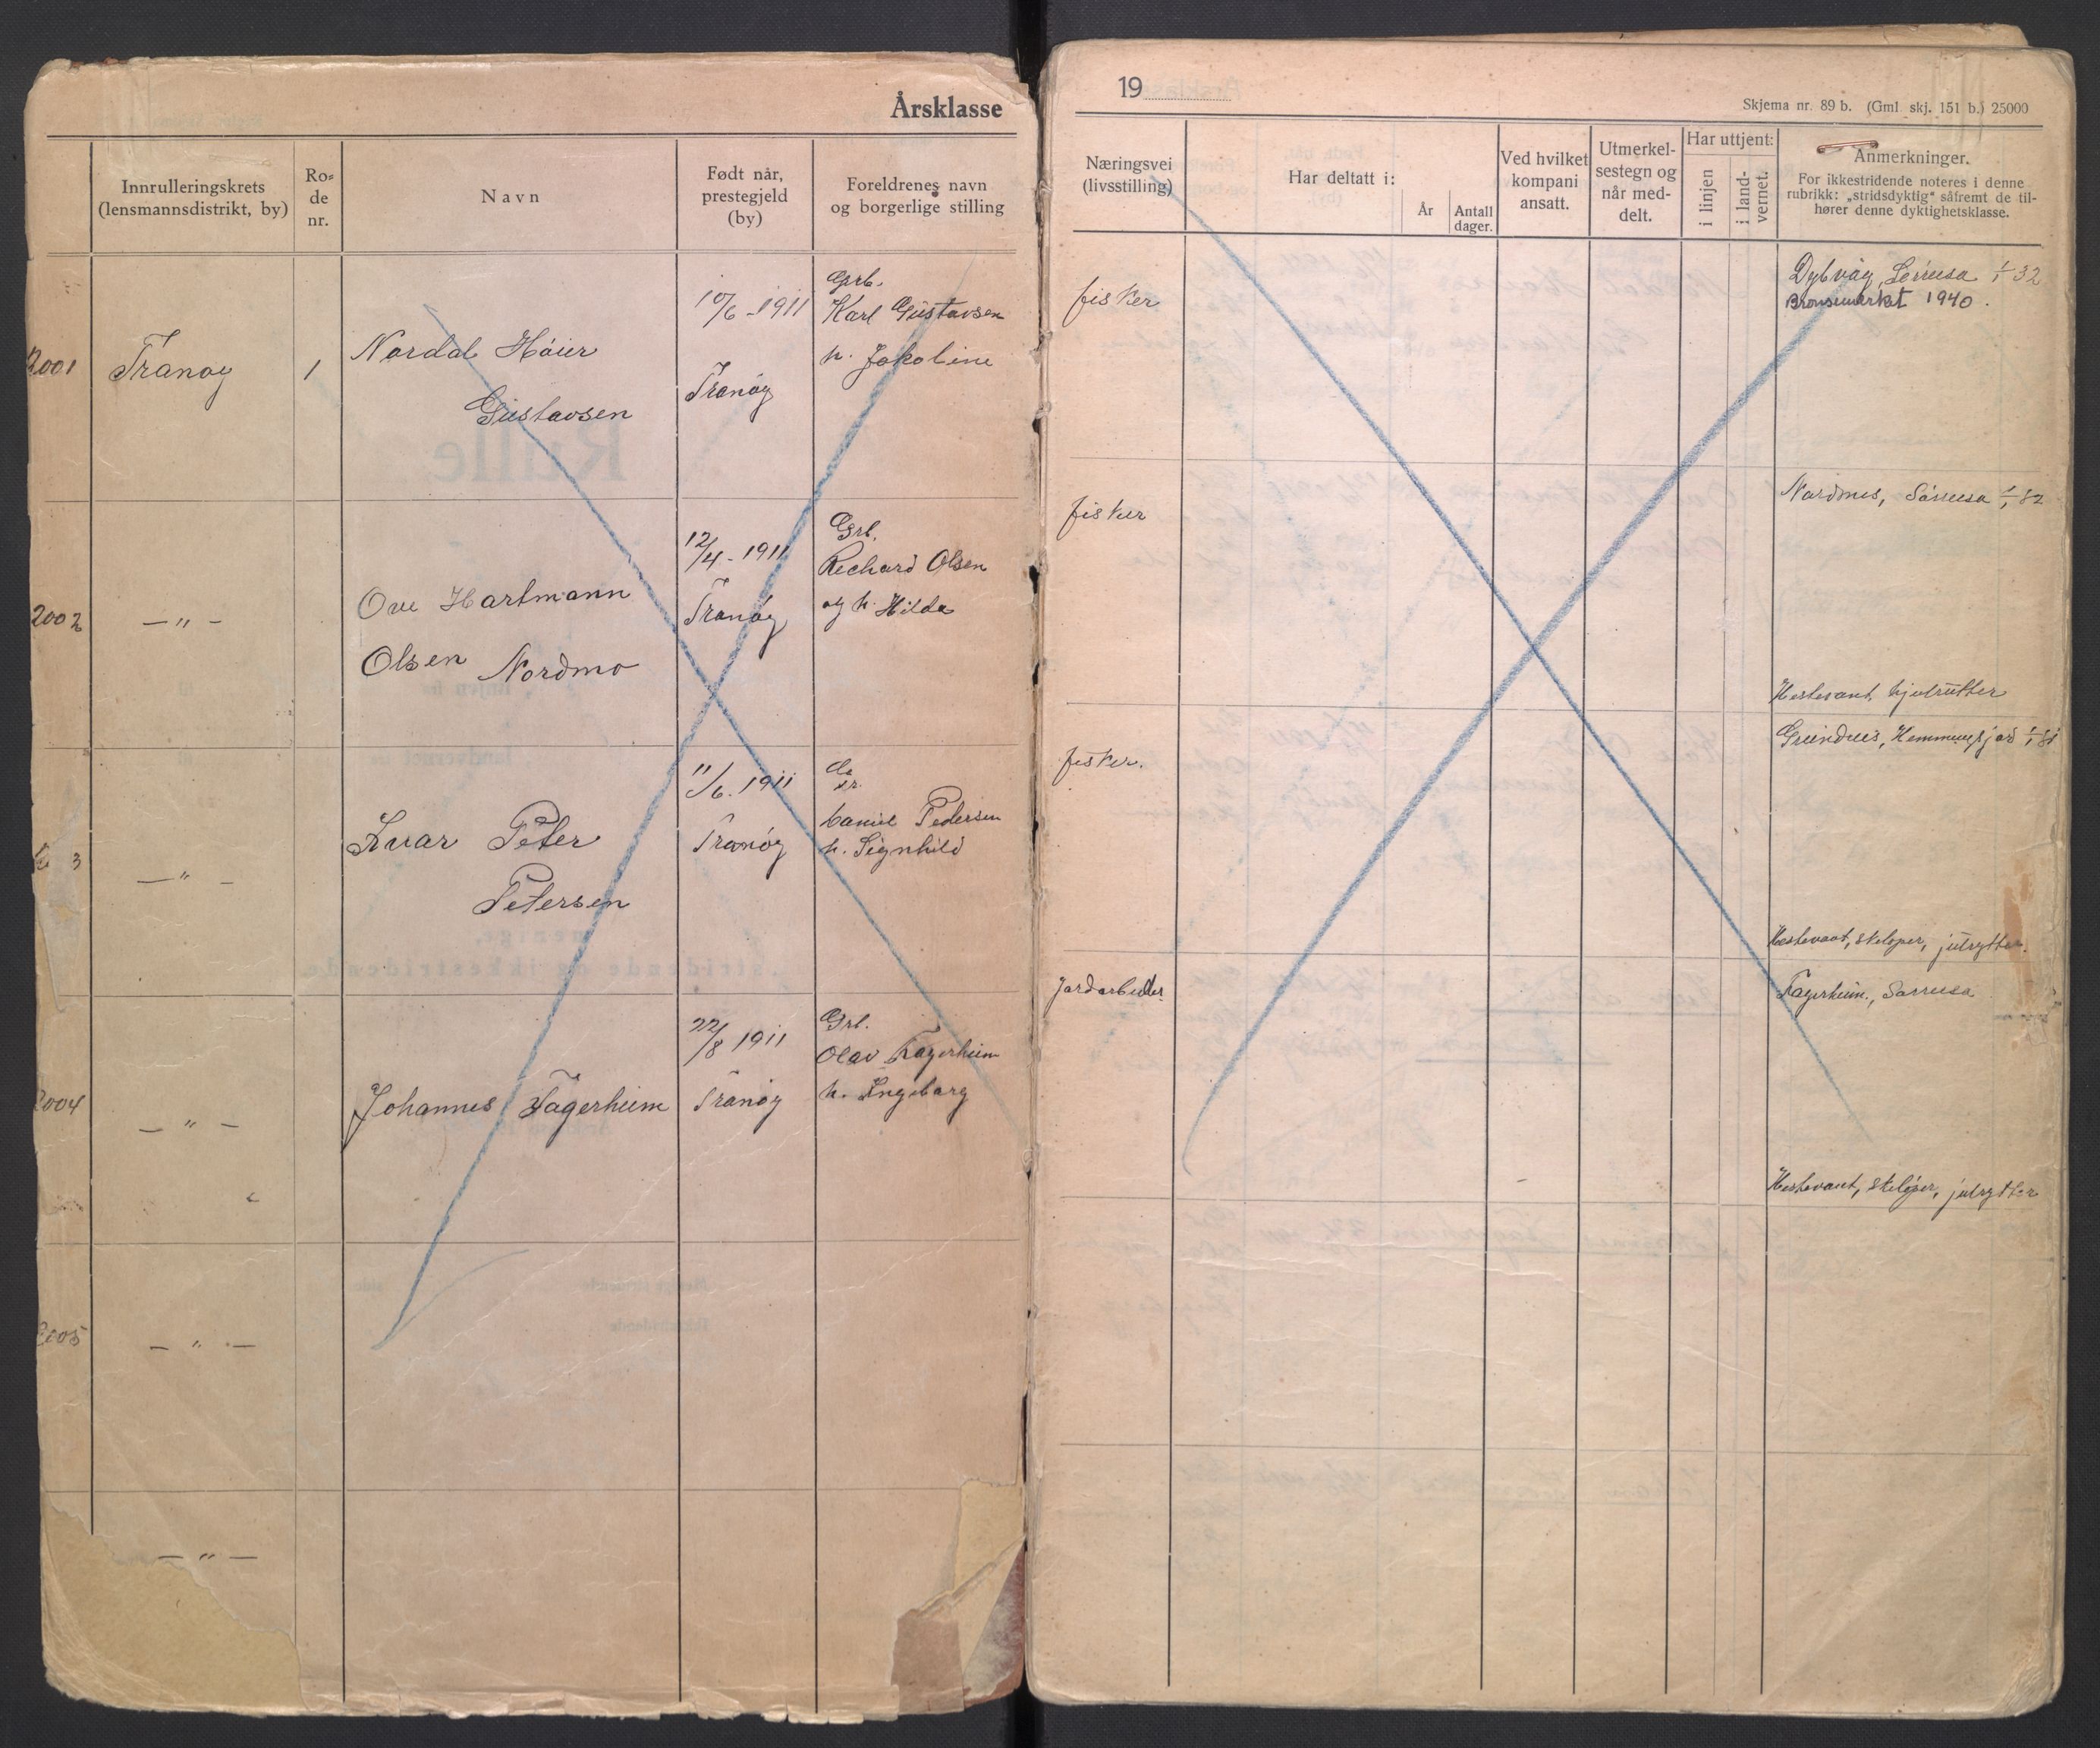 Årsklasse
Innrulleringskrets
(lensmannsdistrikt, by)
Ro-
de
nr.
Navn
Født når,
prestegjeld
(by)
Foreldrenes navn
og borgerlige stilling
2001
Tranøy
1
Nordal Høier
Gustavsen
10/6-1911
Tranøy
Grb.
Karl Gustavsen
h. Jakoline
2002
— " —
Ove Hartmann
Olsen Nordmo
12/4-1911
Tranøy
Grb.
Richard Olsen
og h. Hilda
3
— " —
Ivar Peter
Petersen
11/6.1911
Tranøy
Daniel Pedersen
h. Signhild
2004
— " —
Johannes Fagerheim
22/8 1911
Tranøy
Grb.
Olav Fagerheim
h. Ingeborg
2005
— " —
— " —
19
Skjema nr. 89 b. (Gml skj. 151 b.) 25000
Næringsvei
(livsstilling)
Har deltatt i:
År
Antall
dager.
Ved hvilket
kompani
ansatt.
Utmerkel-
sestegn og
når med-
delt.
Har uttjent:
i linjen
i land-
vernet.
Anmerkninger.
For ikkestridende noteres i denne
rubrikk: „stridsdyktig" såfremt de til-
hører denne dyktighetsklasse.
fisker
Dybvåg, 1/1 32
Bronsemerket 1940.
fisker
Nordmo, 1/1 32
Hestevant, hjulrytter
fisker.
Hemmingsfjord
Hestevant, skiløper, julrytter.
Jordarbeider
Fagerheim,
Hestevant, skiløper, julrytter